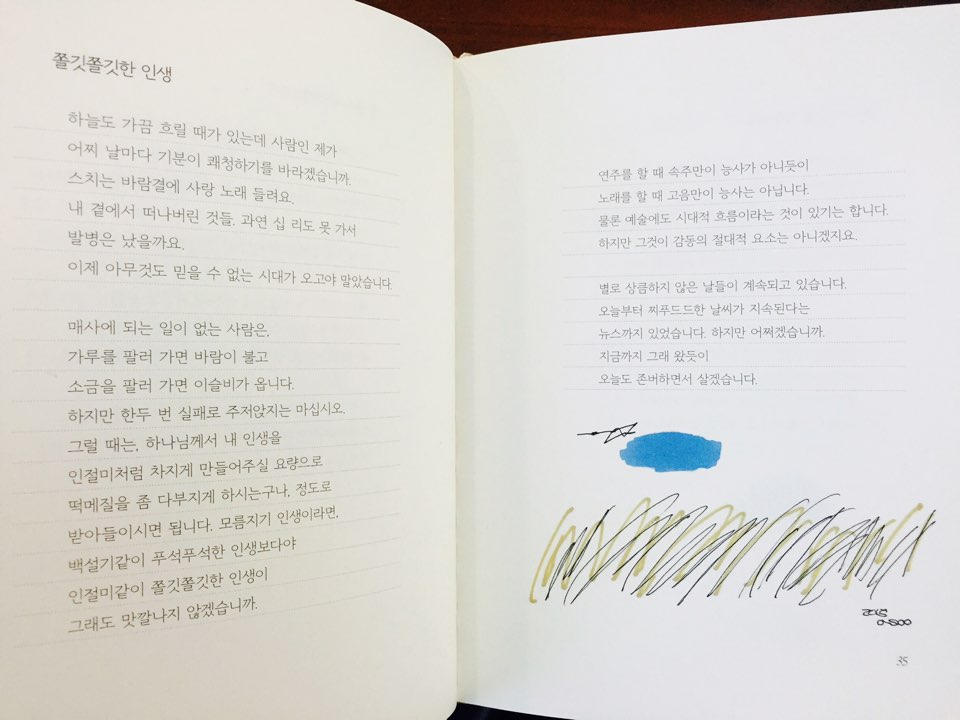 쫄깃쫄깃한 인생
하늘도 가끔 흐릴 때가 있는데 사람인 제가
어찌 날마다 기분이 쾌청하기를 바라겠습니까.
스치는 바람결에 사랑 노래 들려요.
내 곁에서 떠나버린 것들. 과연 십 리도 못 가서
발병은 났을까요.
이제 아무것도 믿을 수 없는 시대가 오고야 말았습니다.
매사에 되는 일이 없는 사람은,
가루를 팔러 가면 바람이 불고
소금을 팔러 가면 이슬비가 옵니다.
하지만 한두 번 실패로 주저앉지는 마십시오.
그럴 때는, 하나님께서 내 인생을
인절미처럼 차지게 만들어주실 요량으로
떡메질을 좀 다부지게 하시는구나, 정도로
받아들이시면 됩니다. 모름지기 인생이라면,
백설기같이 푸석푸석한 인생보다야
인절미같이 쫄깃쫄깃한 인생이
그래도 맛깔나지 않겠습니까.
연주를 할 때 속주만이 능사가 아니듯이
노래를 할 때 고음만이 능사는 아닙니다.
물론 예술에도 시대적 흐름이라는 것이 있기는 합니다.
하지만 그것이 감동의 절대적 요소는 아니겠지요.
별로 상큼하지 않은 날들이 계속되고 있습니다.
오늘부터 찌푸드드한 날씨가 지속된다는
뉴스까지 있었습니다. 하지만 어쩌겠습니까.
지금까지 그래 왔듯이
오늘도 존버하면서 살겠습니다.
35